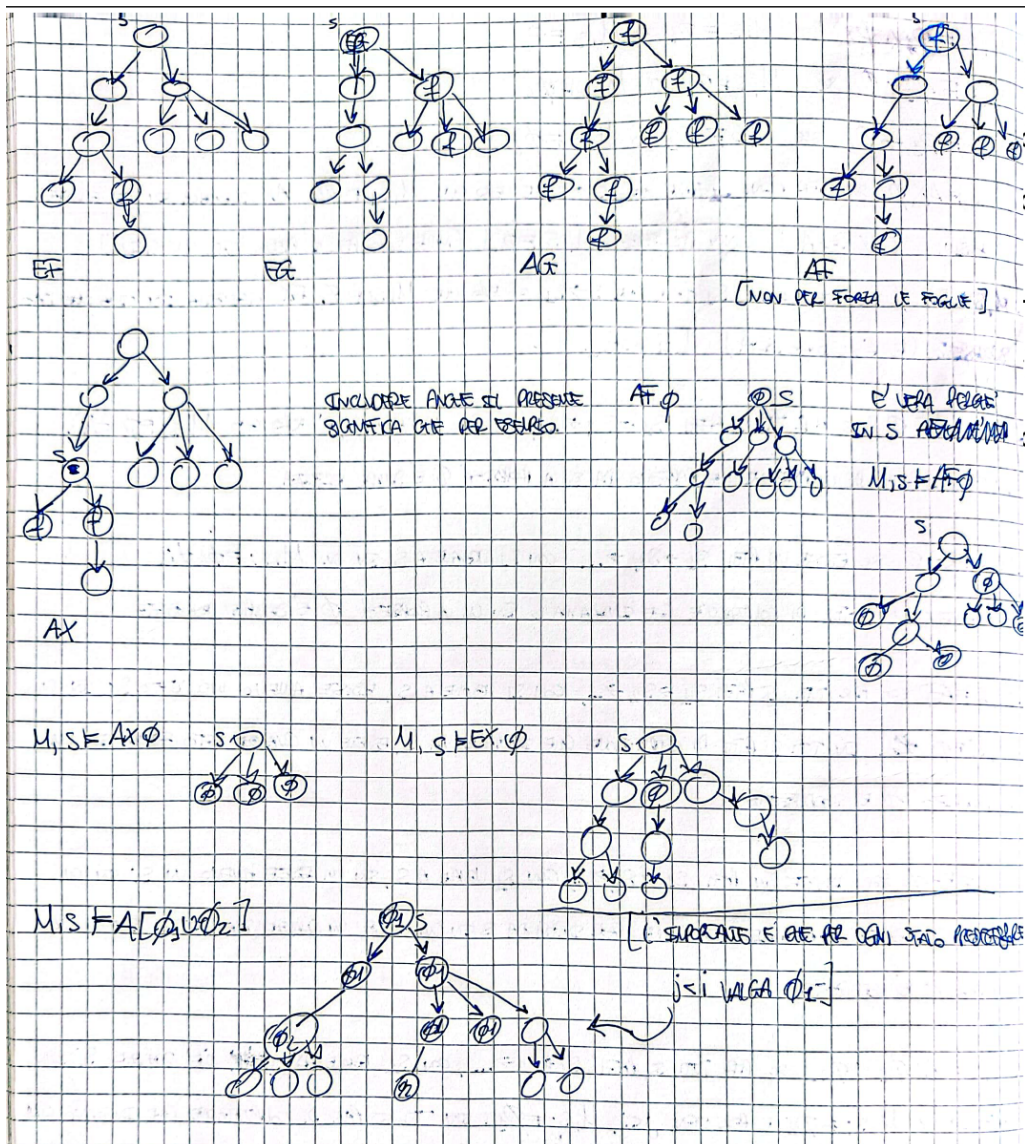 S
S
S
EF
EG
AG
AF
[NON PER FORZA LE FOGLIE]
INCLUDERE ANCHE IL PRESENTE
SIGNIFICA CHE PER ESEMPIO.
AF φ
φ S
E' VERA PERCHE'
IN S
M,S ⊨ AFφ
S
S
AX
M, S ⊨ AX φ
S
φ φ φ
M, S ⊨ EX φ
S
φ
M,S ⊨ A[φ1 U φ2]
φ1 S
φ1 φ1
φ2
[L'IMPORTANTE E' CHE PER OGNI STATO PREDECESSORE
j<i VALGA φ1]